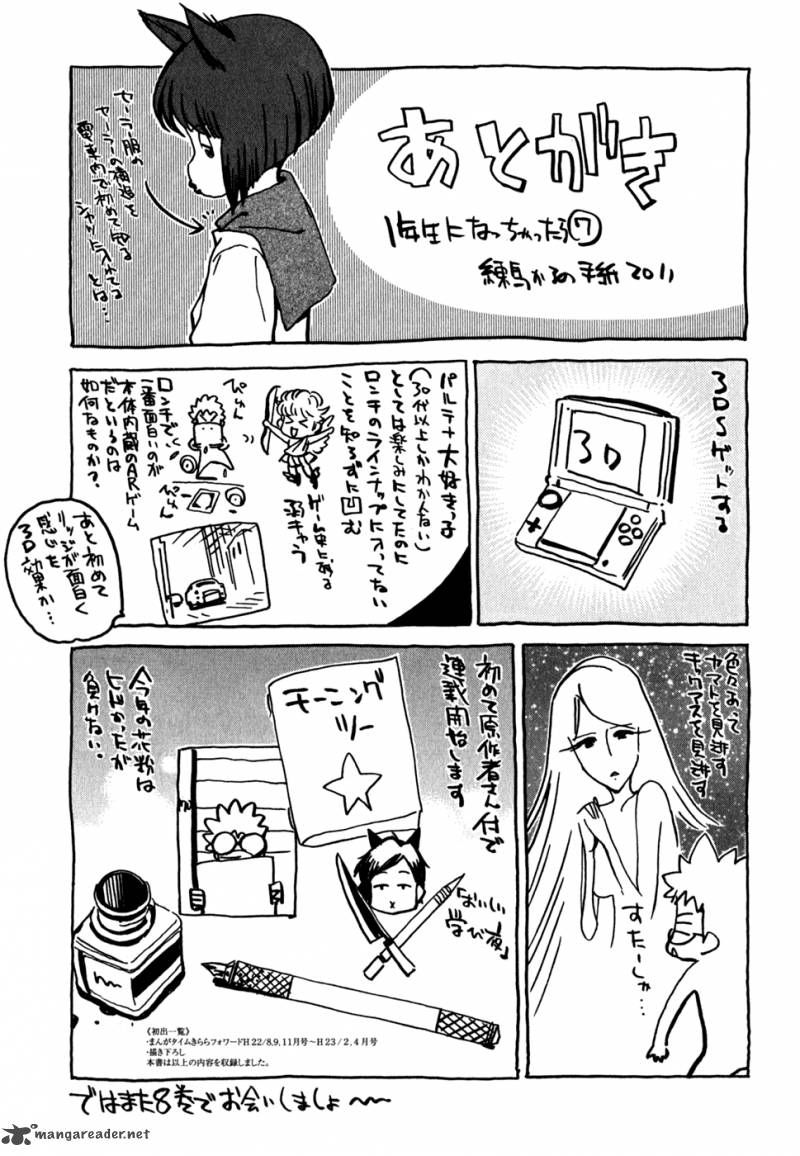 あとがき
1年生になっちゃったら⑦
練馬かるの手紙 2011
セーラー服の
セーラーの構造を
電車内で初めて知る
シャツに入れてる
とは…
3DSゲットする
3D
パルテナ大好きっ子
(30代以上しかわかんない)
としては楽しみにしてたのに
ロンチのラインナップに入ってない
ことを知らずに凹む
ゲーム史に残る
弱キャラ
ぴゅん
ぴゅん
ロンチで
一番面白いのが
本体内蔵のARゲーム
だというのは
如何なものか?
あと初めて
リッジが面白く
感じた
3D効果か…
色々あって
ヤマトを見逃す
キックアスを見逃す
すたーしゃ…
初めて原作者さん付で
連載開始します
モーニング
ツー
「おいしい
学び夜」
今年の花粉は
しんどかったが
負けない。
《初出一覧》
・まんがタイムきららフォワードH22/8,9,11月号～H23/2,4月号
・描き下ろし
本書は以上の内容を収録しました。
ではまた8巻でお会いしましょ～
mangareader.net